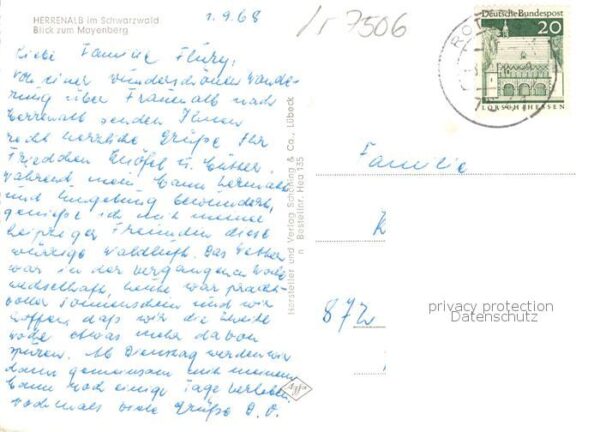 HERRENALB im Schwarzwald
Blick zum Mayenberg
1.9.68
Liebe Familie Flury,
Von einer wunderschönen Wande-
rung über Frauenalb nach
Herrenalb senden Ihnen
recht herzliche Grüße Ihr
Friedchen u.
Während mein Mann Herrenalb
und Umgebung bewundert,
genieße ich mit meinen
Leipziger Freunden diese
würzige Waldluft. Das Wetter
war in der vergangenen Woche
wechselhaft, heute war pracht-
voller Sonnenschein und wir
hoffen, daß wir die zweite
Woche etwas mehr davon
spüren. Ab Dienstag werden wir
dann gemeinsam mit meinem
Mann noch einige Tage verleben.
Nochmals viele Grüße D. O.
Hersteller und Verlag Schöning & Co., Lübeck
Bestellnr. Hea 135
Agfa
7506
Deutsche Bundespost
20
LORSCH/HESSEN
Familie
872
privacy protection
Datenschutz